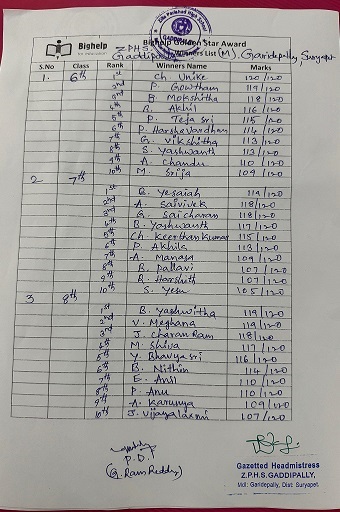 Zilla Parishad High School
GADDIPALLY
Bighelp
for education
Bighelp Golden Star Award
Z.P.H.S. Winners List (M). Garidepally, Suryapet
Gaddipally
S.No Class Rank Winners Name Marks
1. 6th 1st Ch. Unike 120/120
2nd P. Gowtham 119/120
3rd B. Mokshitha 118/120
4th R. Akhil 116/120
5th P. Teja Sri 115/120
6th P. Harshavardhan 114/120
7th G. Vikshitha 113/120
8th S. Yashwanth 113/120
9th A. Chandu 110/120
10th M. Srija 109/120
2 7th 1st B. Yesaiah 119/120
2nd A. Saivivek 118/120
3rd G. Sai charan 118/120
4th B. Yashwanth 117/120
5th Ch. Keerthan Kumar 115/120
6th P. Akhila 113/120
7th A. Manasa 109/120
8th R. Pallavi 107/120
9th B. Harshith 107/120
10th S. Yesu 105/120
3 8th 1st B. Yashwitha 119/120
2nd V. Meghana 119/120
3rd J. Charan Ram 118/120
4th M. Shiva 117/120
5th Y. Bhavya sri 116/120
6th B. Nithin 114/120
7th E. Anil 110/120
8th P. Anu 110/120
9th A. Karunya 109/120
10th J. Vijayalaxmi 107/120
P.D.
(G. Ram Reddy)
Gazetted Headmistress
Z.P.H.S. GADDIPALLY,
Mdl: Garidepally, Dist: Suryapet.